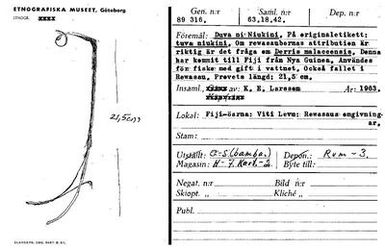 ETNOGRAFISKA MUSEET, Göteborg
21,5cm
Gen. n:r
89 316.
Saml. n:r
63,18,42.
Dep. n:r
Föremål: Duva ni-Niukini, På originaletikett:
tuva niukini, Om rewasaubernas attribution är
riktig är det fråga om Derris malaccensis, Denna
har kommit till Fiji från Nya Guinea, Användes
för fiske med gift i vattnet, Också fallet i
Rewasau, Provets längd: 21,5 cm.
Insaml. av K. E. Larsson År: 1963.
Lokal: Fiji-öarna: Viti Levu: Rewasaus omgivning-
ar,
Stam:
Utställt: Depon.: Rum-3.
Magasin: Byte till:
Negat. n:r Bild n:r
Skiopt. n:r Kliché n:r
Publ.